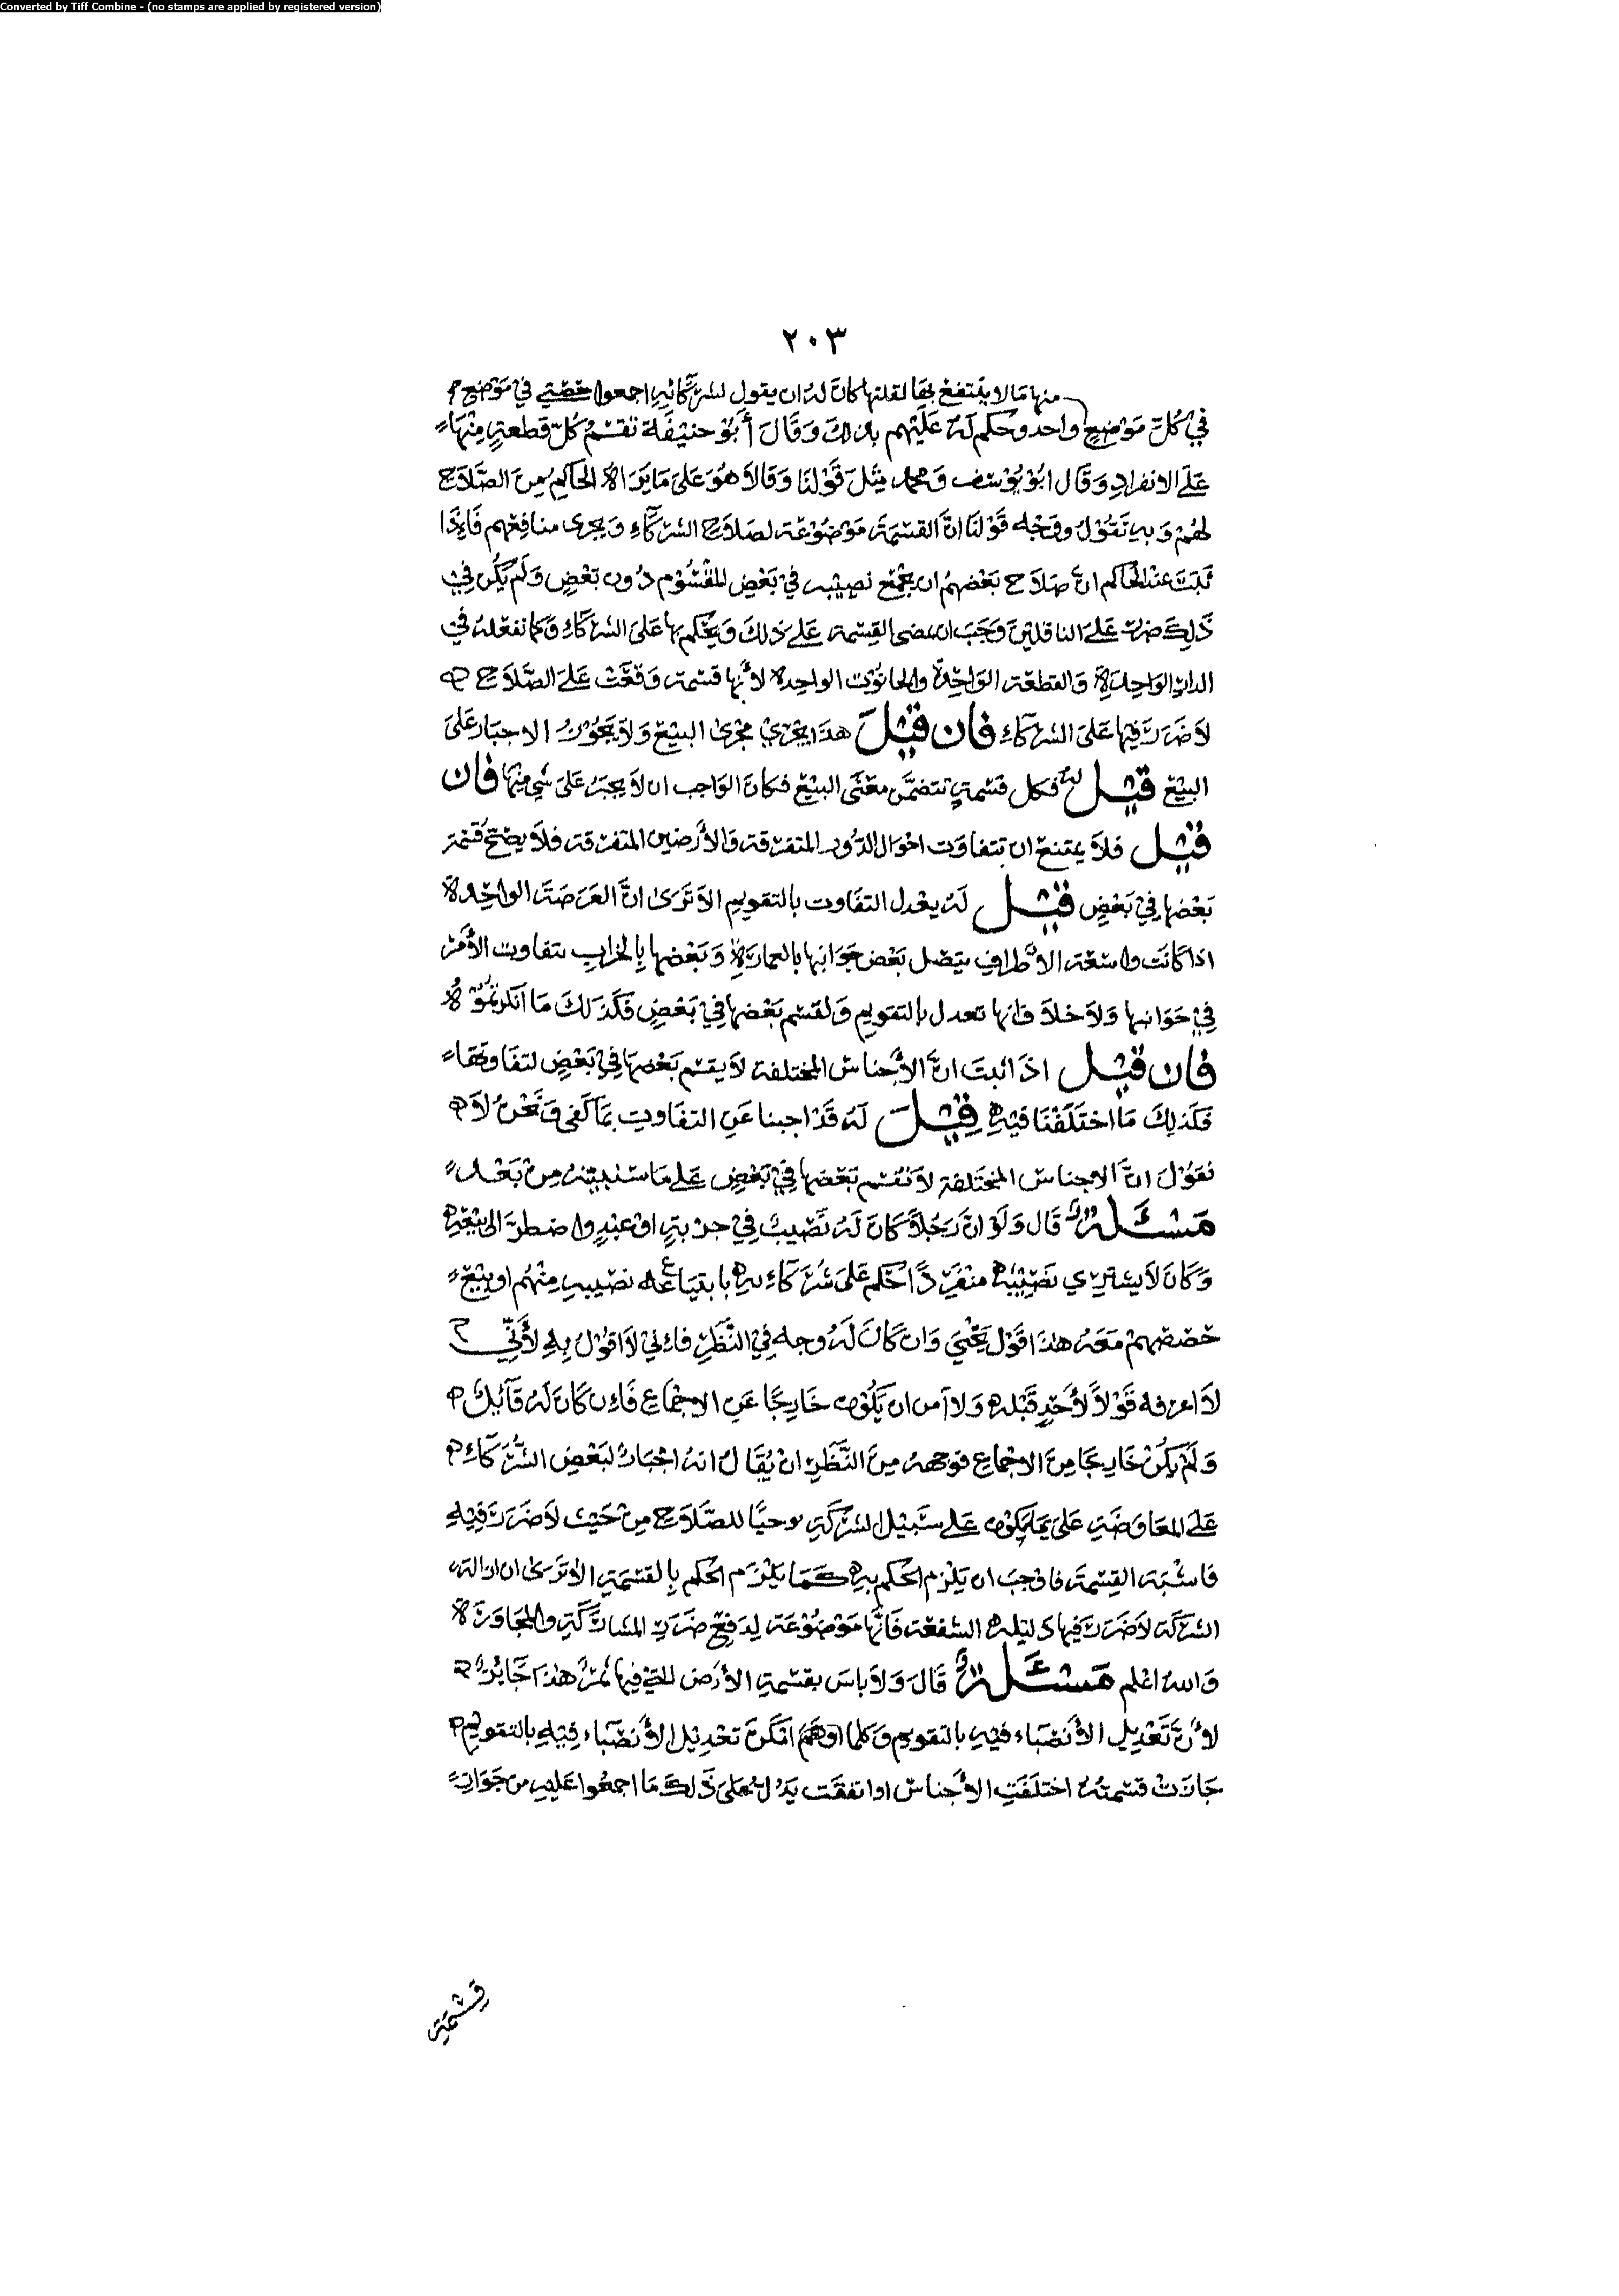 Converted by Tiff Combine - (no stamps are applied by registered version)
٢٠٣
منها مَا لا ينتفعُ بها لقلتها كانَ لهُ ان يقول لشركائِهِ اجمعوا حصّتي في مَوْضعٍ
في كُلّ مَوْضعٍ واحد وحكم لَهُ عَلَيْهم بذلك وَقَالَ أَبُوْ حنيْفَة تقسَمُ كُلّ قطعةٍ مِنْهَا
عَلَى الانفرادِ وَقال ابُوْ يُوْسُف وَمحمد مِثْلَ قَوْلنَا وَقالاَ هُوَ عَلىَ مَا يَرَاهُ الحاكمُ مِنَ الصَّلاَحِ
لهُمْ وَبهِ نَقُوْلُ وَوَجْه قَوْلنَا انَّ القسْمَةَ مَوْضُوْعَة لصَلاَحِ الشركَآءِ وَيجرى منافعهم فَاِذَا
ثَبَتَ عندَ الحاكم انَّ صَلاَحَ بَعْضهمُ ان يجْمَع نصِيْبه فيْ بَعْضِ المقْسُوْم دُون بَعْضٍ وَلَمْ يَكُن فيْ
ذَلِكَ ضررٌ عَلَى الناقلينَ وَجَبَ ان تمضى القِسْمة عَلَى ذلكَ وَيحْكم بهَا عَلىَ الشركَآءِ وَكما نفعَلهُ في
الدارِ الواحِدَةِ وَالقطعَة الوَاحِدَةِ وَالحانُوْتِ الواحدةِ لأنّها قسْمة وَقَعَتْ عَلَى الصَّلاَحِ
لاَ ضَرَرَ فيها عَلىَ الشركَآءِ فَان قِيْلَ هذَا يجْرِيْ مجْرَى البيْع وَلاَ يجُوْزُ الاجبار عَلىَ
البيْع قيْلَ لهُ فكل قسْمةٍ تتضمَّن معْنَى البيْعِ فكانَ الوَاجب ان لاَ يجبَرُ عَلىَ شيءٍ مِنْهَا فَان
قيْل فَلاَ يمتنعُ ان تتفاوَت احْوَال الدُّور المتفرّقة وَالأرضين المتفرقة فلاَ يصِحُّ قسْمة
بَعْضهَا فِيْ بَعْضٍ قِيْل لَهُ يعْدل التفَاوت بالتقويمِ الاَ تَرَى انَّ العَرَصَة الواحِدة
اذا كَانَت وَاسعَة الأطرافِ يتصل بَعْض جَوَانبها بالعمارَةِ وَبَعْضها بِالخرابِ تتفاوت الأمرُ
فيْ جَوَانبها وَلاَ خلاَف انها تعدل بالتقويمِ وَتقسم بَعْضهَا فيْ بَعْضٍ فكَذلكَ مَا انكرتموْهُ
فَان قيْل اذَا ثبتَ انَّ الأجناس المختلفة لاَ يقسم بَعْضهَا فيْ بَعْضٍ لتفَاوتهَا
فكَذلِكَ مَا اختَلَفْنَا فيْهِ قِيْلَ لَهُ قَدْ اجبنا عَن التفَاوتِ بمَا كفى وَنَحْنُ لاَ
نقوْلُ انَّ الاجناس المختَلفة لاَ تُقْسَم بَعْضهَا فيْ بَعْضٍ عَلى مَا سَنبيّنهُ مِنْ بَعْدُ
مَسْئَلة قَال وَلَوْ انَّ رَجُلاً كَانَ لَهُ نَصِيْبٌ فيْ جاريةٍ اوْ عَبْدٍ واضطرَّ الى بيْعِهِ
وَكَانَ لاَ يشترِي نَصِيْبهُ منفَرِدًا حُكم عَلىَ شُرَكَآءِهِ بابتيَاع نصِيْبه مِنْهُم او بيْعِ
حصصهمْ مَعَهُ هذا قَوْل يَحْيَى وَان كَانَ لَهُ وجه فِيْ النَّظَرِ فَاِنيْ لاَ اقُوْلُ بِهِ لأَنِّيْ
لاَ اعرفه قَوْلاً لأَحَدٍ قَبْلهِ وَلا آمن ان يَكُوْنَ خَارِجًا عَنِ الاجْمَاعِ فَاِن كَانَ لَهُ قَآئِلٌ
وَلَمْ يَكُنْ خَارِجًا مِنَ الاجْمَاعِ فوجههُ مِنَ النَّظَرِ انْ يُقَالَ انهُ اجْبَارٌ لبَعْضِ الشُّرَكَآءِ
عَلَى المعَاوَضَةِ عَلىَ مَا يَكُوْنُ عَلَى سَبيْل الشركَةِ توخيًا للصَّلاَحِ مِنْ حَيْث لاَ ضَرَرَ فِيْهِ
فَاشْبَهَ القِسْمةَ فَاوْجبَ ان يَلْزم الحُكم بهِ كَمَا يَلْزَم الحُكم بِالقسْمَةِ الاَ تَرَى ان ازالة
الشركة لاَ ضَرَرَ فيها دَليْله الشفعَة فَانَّها مَوْضُوْعَة لِدَفْعِ ضَرَرِ المشاركَةِ وَالمجَاوَرَةِ
وَاللهُ اعْلم مَسْئَلة قَالَ وَلاَ باسَ بقسْمةِ الأرْض التي فيهَا ثمرٌ هذَا جَائزٌ
لأنَّ تَعْدِيل الأنْصبَاء فيْهِ بالتقويمِ وَكلما امْكَنَ تعْدِيْل الأنْصبَاء فِيْهِ بالتقويْمِ
جَازَتْ قسْمتُهُ اختَلَفَتِ الأجْناس او اتفقَت يَدُلُّ عَلىَ ذَلكَ مَا اجمعُوا عَليهِ من جَوَازِ
قِسْمَةِ